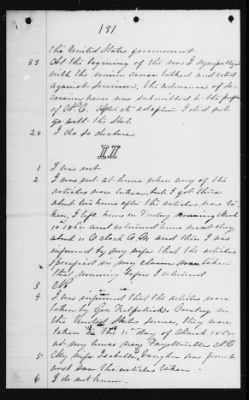 131
the United States government.
33 At the begining of the war I sympathized
with the union cause talked and voted
against secession, the ordinances of se-
cession was submitted to the people
of N.C. After its adoption I did not
go with the State
34 I do so declare
II
1 I was not
2 I was not at home when any of the
articles were taken, but I got there
about two hours after the articles were ta-
ken, I left home on Friday morning March
10th 1865 and returned home next day
about 11 O clock A.M. and then I was
informed by my wife that the articles
specified in my claim were taken
that morning before I returned
3 No
4 I was informed that the articles were
taken by Gen Kilpatricks Cavalry in
the United States service, they were
taken on the 11th day of March 1865
at my house near Fayetteville N.C.
5 My wife Isabella was present
and saw the articles taken.
6 I do not know.